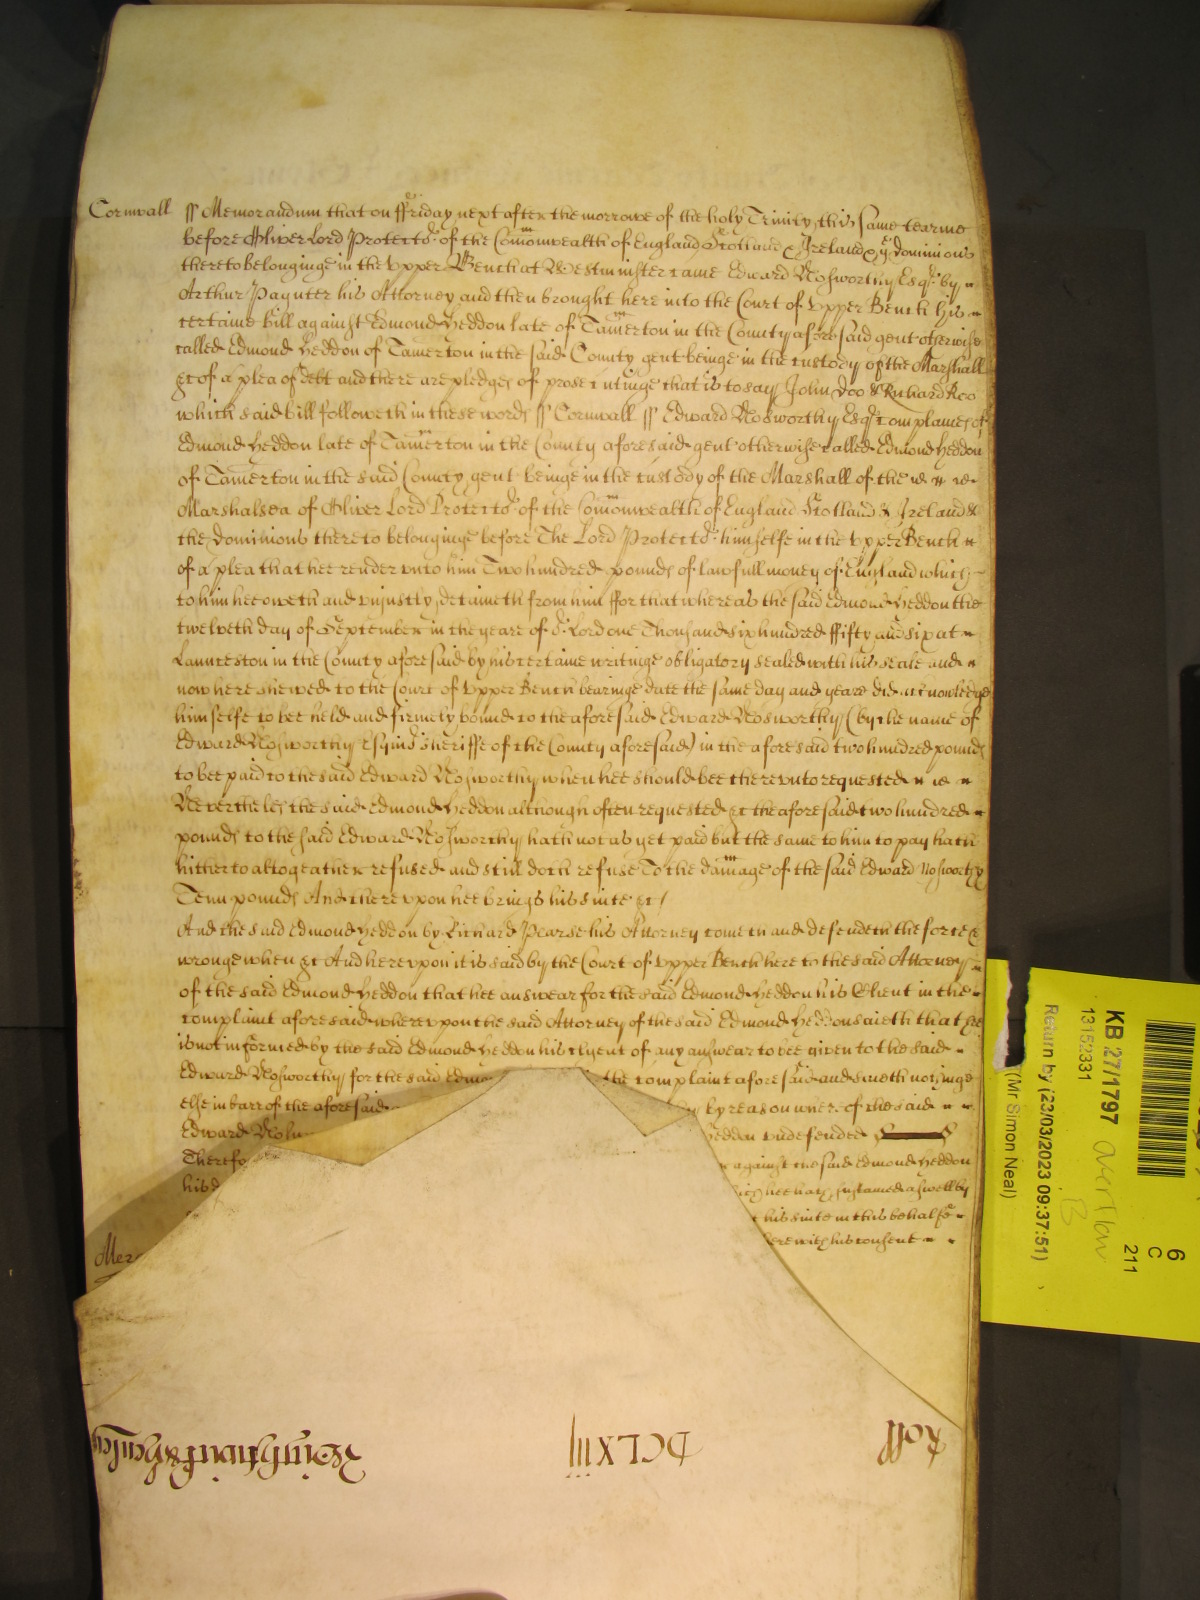 Cornwall ss Memorandum that on ffriday next after the morrowe of the holy Trinity this same tearme
before Oliver Lord Protector of the Comonwealth of England Scotland & Ireland & ye dominions
thereto belonginge in the Upper Bench at Westminster came Edward Nosworthy Esqr by
Arthur Paynter his Attorney and then brought here into the Court of Upper Bench his
certaine bill against Edmond Heddon late of Tamerton in the County aforesaid gent otherwise
called Edmond Heddon of Tamerton in the said County gent beinge in the custody of the Marshall
&c of a plea of debt and there are pledges of prosecutinge that is to say John Doo & Richard Roo
which said bill followeth in these words ss Cornwall ss Edward Nosworthy Esqr complaines of
Edmond Heddon late of Tamerton in the County aforesaid gent otherwise called Edmond Heddon
of Tamerton in the said County gent beinge in the custody of the Marshall of the
Marshalsea of Oliver Lord Protector of the Comonwealth of England Scotland & Ireland &
the dominions thereto belonginge before The Lord Protector himselfe in the Upper Bench
of a plea that hee render unto him Two hundred pounds of lawfull money of England which
to him hee oweth and unjustly detaineth from him ffor that whereas the said Edmond Heddon the
twelveth day of September in the yeare of or Lord one Thousand six hundred ffifty and six at
Launceston in the County aforesaid by his certaine writinge obligatory sealed with his seale and
now here shewed to the Court of Upper Bench bearinge date the same day and yeare did acknowledge
himselfe to bee held and firmely bound to the aforesaid Edward Nosworthy (by the name of
Edward Nosworthy Esquire sheriffe of the County aforesaid) in the aforesaid two hundred pounds
to bee paid to the said Edward Nosworthy when hee should bee thereunto requested
Neverthelesse the said Edmond Heddon although often requested &c the aforesaid two hundred
pounds to the said Edward Nosworthy hath not as yet paid but the same to him to pay hath
hitherto altogeather refused and still doth refuse To the damage of the said Edward Nosworthy
Tenn pounds And thereupon hee brings his suite &c/
And the said Edmond Heddon by Richard Pearse his Attorney cometh and defendeth the force &
wronge when &c And hereupon it is said by the Court of Upper Bench here to the said Attorney
of the said Edmond Heddon that hee answear for the said Edmond Heddon his Client in the
complaint aforesaid whereupon the said Attorney of the said Edmond Heddon saieth that hee
is not informed by the said Edmond Heddon his clyent of any answear to bee given to the said
Edward Nosworthy for the said Edmo the complaint aforesaid and saieth nothinge
else in barr of the aforesaid by reason whereof the said
Edward Nosw Heddon undefended
Therefo against the said Edmond Heddon
his d hee hath sustained aswell by
his suite in this behalfe
here with his consent
Mer
Roll DCLXIII
KB 27/1797
13152331
Return by (23/03/2023 09:37:51)
(Mr Simon Neal)
overflow
B
6
C
211